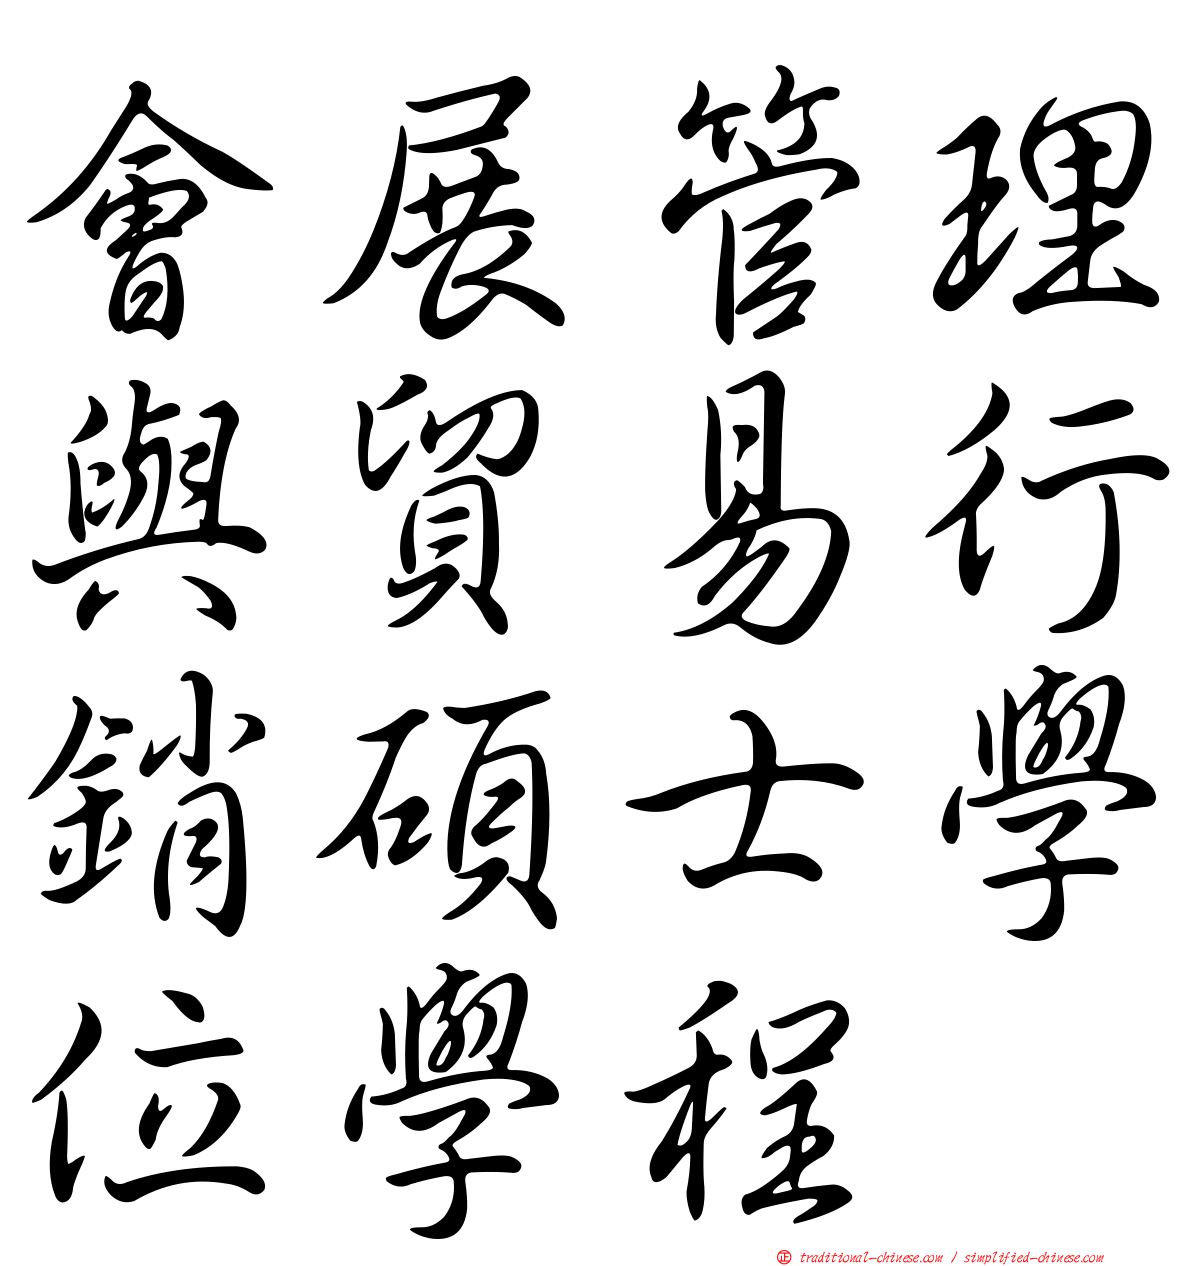 會展管理
與貿易行
銷碩士學
位學程
正 traditional-chinese.com / simplified-chinese.com